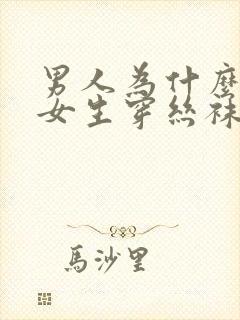 男人為什麼
女生穿絲袜
馬沙里